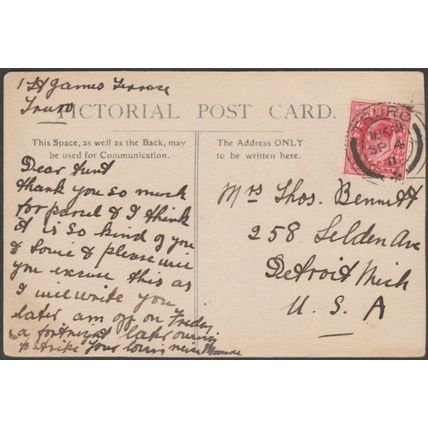 1 St James Terrace
Truro
PICTORIAL POST CARD.
This Space, as well as the Back, may
be used for Communication.
The Address ONLY
to be written here.
TRURO
SP 4
11
Dear Aunt
thank you so much
for parcel & I think
it is so kind of you
& Louie & please will
you excuse this as
I will write you
later am off on Friday
a fortnight later owing
to strike Your loving niece
Mrs Thos. Bennett
258 Selden Ave
Detroit Mich
U. S. A